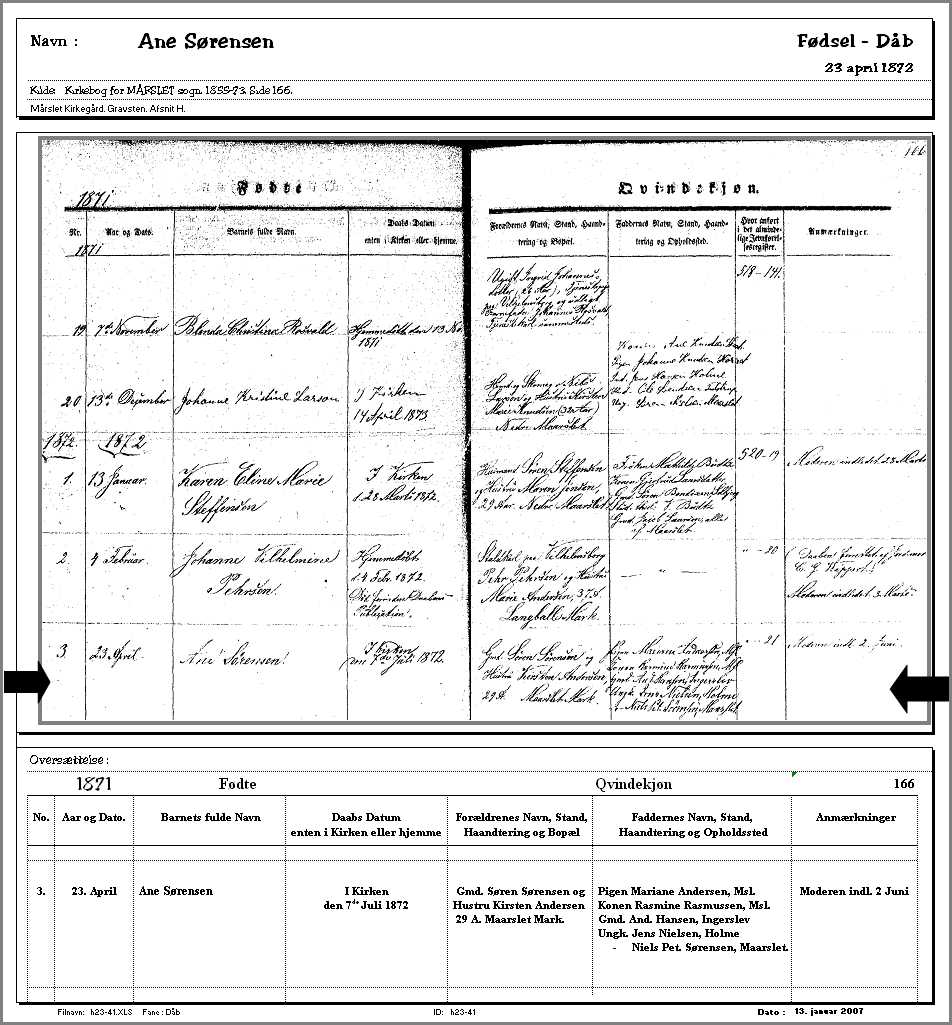 Navn : Ane Sørensen Fødsel - Dåb
23 april 1872
Kilde: Kirkebog for MÅRSLET sogn. 1859-73. Side 166.
Mårslet Kirkegård. Gravsten. Afsnit H.
166
1871 Fødte Qvindekjøn.
Nr. Aar og Dato. Barnets fulde Navn. Daabs-Datum enten i Kirken eller hjemme. Forældrenes Navn, Stand, Haandtering og Bopæl. Faddernes Navn, Stand, Haandtering og Opholdssted. Hvor anført i det almindelige Jevnførelsesregister. Anmærkninger.
1871
518-191.
19. 7de November Blenda Christina Rosvald Hjemmedøbt den 13 No
1871
20. 13de December Johanne Kristine Larson I Kirken
14 April 1873
Nedre Maarslet.
1872 1872
1. 13 Januar. Karen Eline Marie I Kirken Huusmand Søren Steffensen 520-19 Moderen indledet d. 28 Marts
Steffensen 1.28 Marts 1872. og Hustru Maren Jensen
29 Aar. Nedre Maarslet
2. 4 Februar. Johanne Vilhelmine Hjemmedøbt Staldkarl paa Vilhelmsborg " - 20
Pehrson. 1.4 Febr. 1872. Pehr Pehrson og Hustru — " —
Marie Andersen, 37 A. Moderen indledet 3 Marts.
Publication. Langballe Mark.
3. 23 April. Ane Sørensen. I Kirken Gmd. Søren Sørensen og Pigen Mariane Andersen, Msl. " - 21 Moderen indl. 2 Juni.
den 7de Juli 1872. Hustru Kirsten Andersen, Konen Rasmine Rasmussen, Msl.
29 A. Maarslet Mark. Gmd. And. Hansen, Ingerslev
Ungk. Jens Nielsen, Holme
- Niels Pet. Sørensen, Maarslet.
Oversættelse :
1871 Fødte Qvindekjøn 166
No. Aar og Dato. Barnets fulde Navn Daabs Datum Forældrenes Navn, Stand, Faddernes Navn, Stand, Anmærkninger
enten i Kirken eller hjemme Haandtering og Bopæl Haandtering og Opholdssted
3. 23. April Ane Sørensen I Kirken Gmd. Søren Sørensen og Pigen Mariane Andersen, Msl. Moderen indl. 2 Juni
den 7de Juli 1872 Hustru Kirsten Andersen Konen Rasmine Rasmussen, Msl.
29 A. Maarslet Mark. Gmd. And. Hansen, Ingerslev
Ungk. Jens Nielsen, Holme
- Niels Pet. Sørensen, Maarslet.
Filnavn: h23-41.XLS Fane : Dåb ID: h23-41 Dato : 13. januar 2007